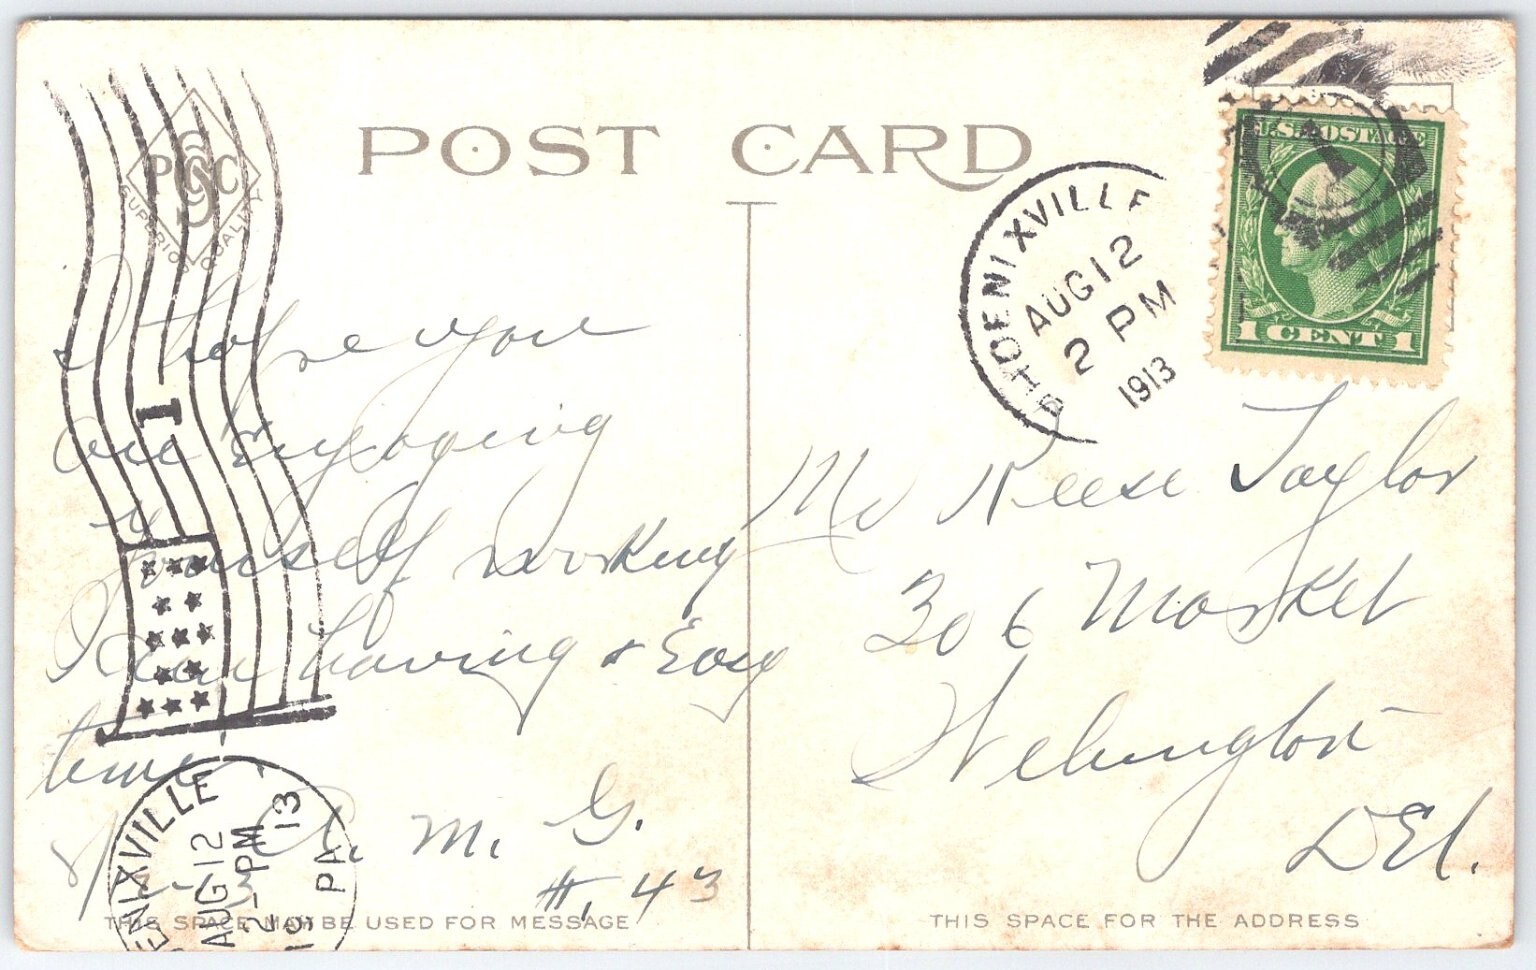 POST CARD
PSC
SUPERIOR QUALITY
PHOENIXVILLE
AUG 12
2 PM
1913
U.S. POSTAGE
1 CENT 1
1
I hope you
are enjoying
yourself working
having & Easy
time
A. M. G.
#. 43
Mr Reese Taylor
306 Market
Welmington
DEl.
PHOENIXVILLE
AUG 12
2 PM
1913
PA
THIS SPACE MAY BE USED FOR MESSAGE
THIS SPACE FOR THE ADDRESS